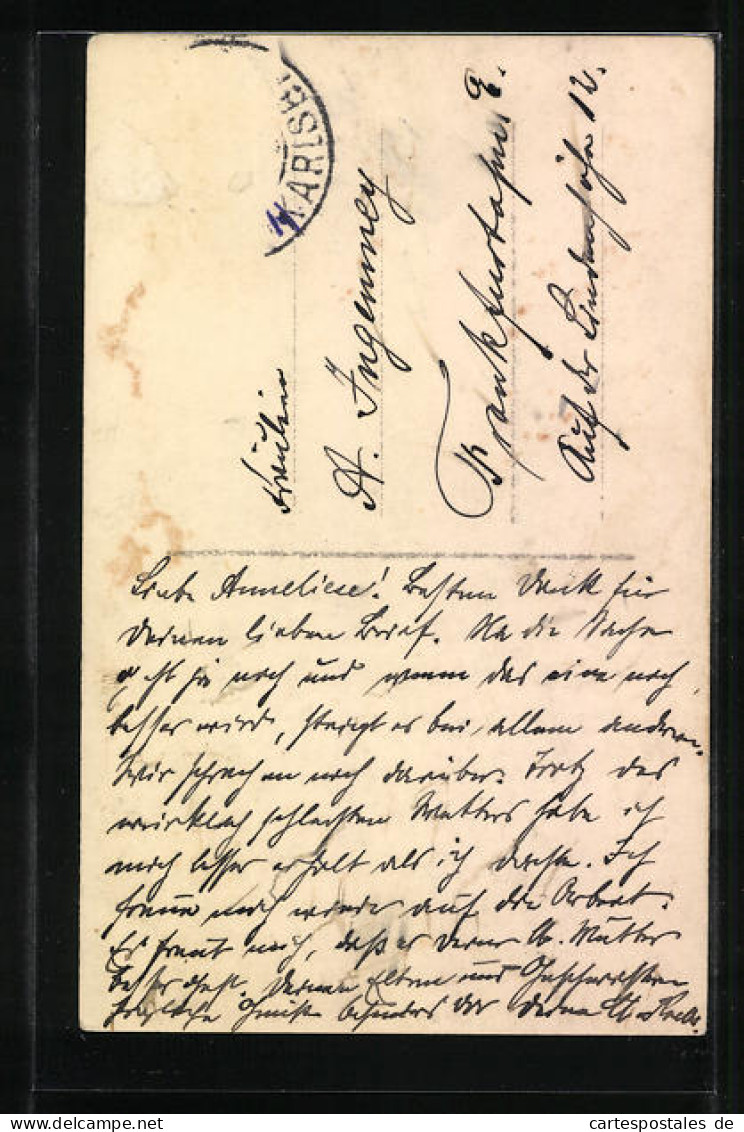 KARLSR
Fräulein
A. Ingenmey
Frankfurt
Auf der Lindenhöhe 12.
Liebe Anneliese! Besten Dank für
Deinen lieben Brief. Na die Sache
geht ja noch und wenn das eine noch
besser wird, steigt es bei allem anderen.
Wir sprechen noch darüber. Trotz des
wirklich schlechten Wetters habe ich
mich besser erholt als ich dachte. Ich
freue mich wieder auf die Arbeit.
Es freut mich, daß es Deiner lb. Mutter
besser geht. Deinen Eltern und Geschwistern
herzliche Grüße besonders Dir Deine
cartespostales de